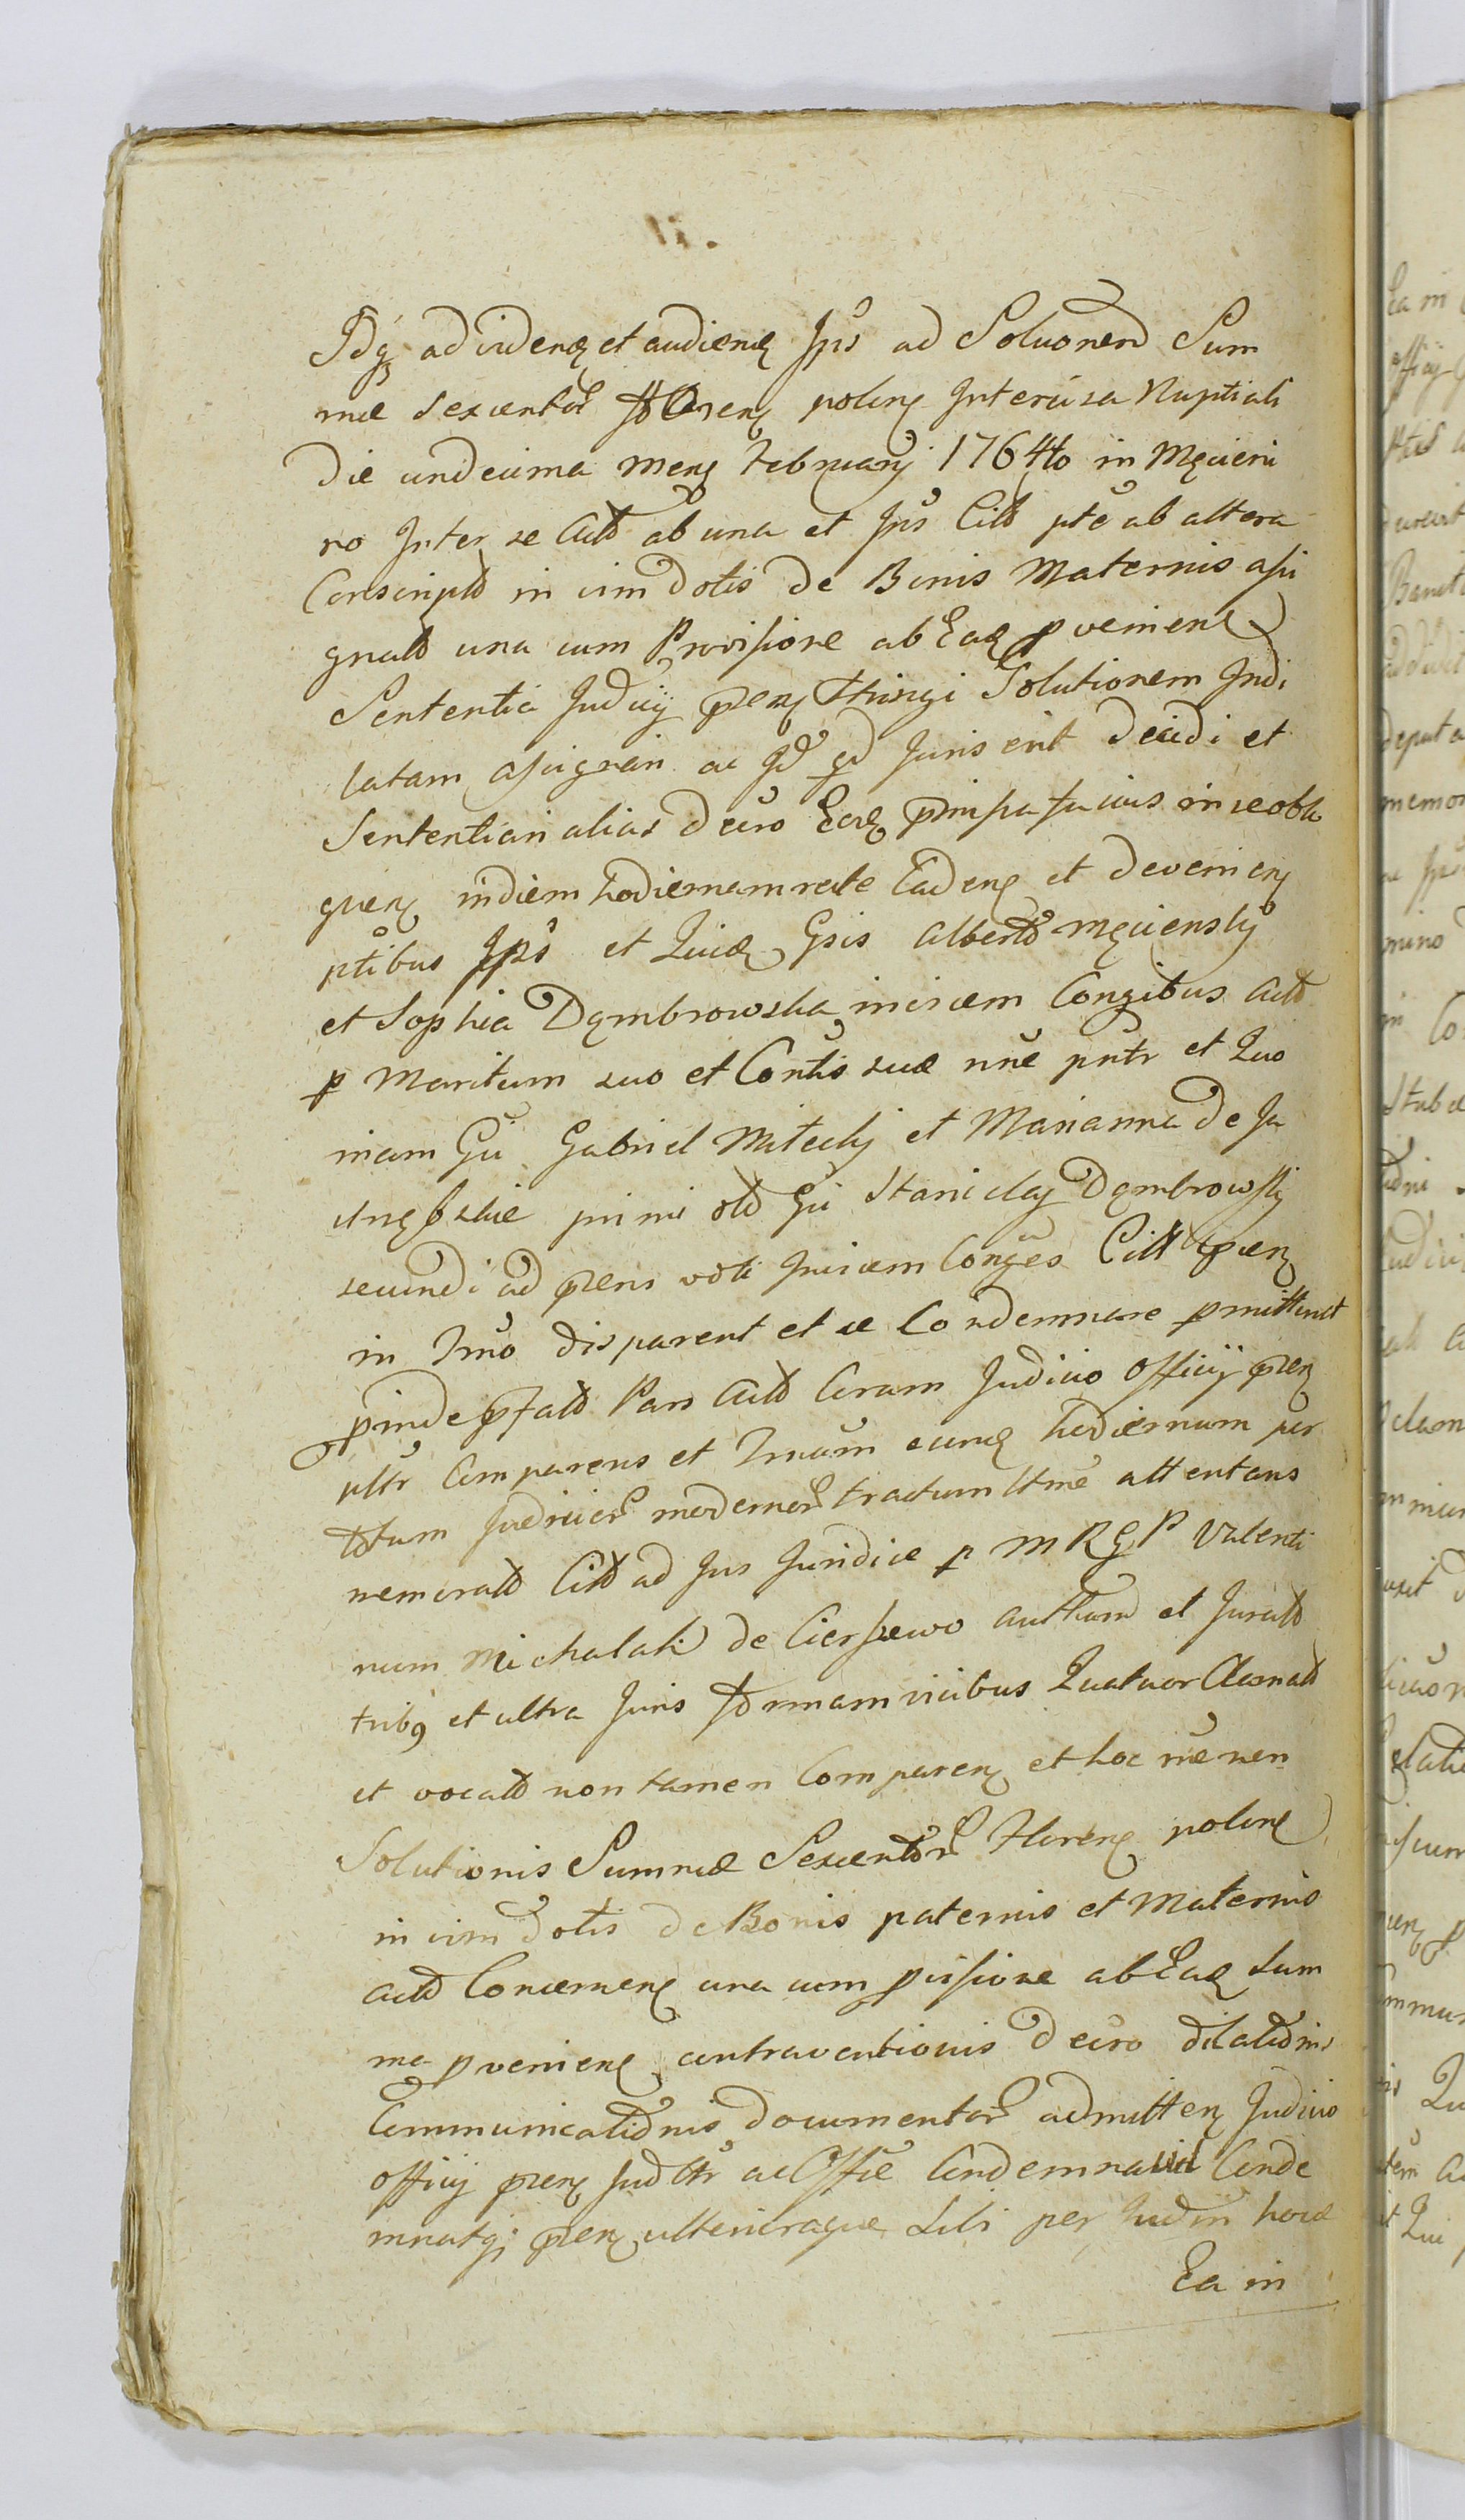 Idq ad videnq et audienq Ipŝ ad Soluonem Sum
mæ sexcentor florenq polonq Intercisa Nuptiali
Die undecima menq February 1764to in Męcieni
no Inter se Actō ab una et Ipŝ Citō pte ab altera
Conscriptō in vim dotis de Bonis Maternis assi
gnatō una cum Provisione ab Eaq pvenienq
Sententia Judicij prænq Stringi Solutionem Indi
latam assignari ac qd qd Juris erit decidi et
Sententiari alias decŝo Eadq in se obli
quenq in diem hodiernam recte Cadenq et devenienq
ptibus Ipŝ et Lucidq Gsis Albertō Męcienskij
et Sophia Dąmbrowska invicem Conzibus Actō
p Maritum suo et Contis suæ nne pntr et Quo
niam Gŭ Gabriel Mitecky et Marianna de Ja
strzębskie primi otō Gŭ Stanislaj Dąmbrowsky
secundi ad præns voti Invicem Conges Citt prænq
in Tmo disparent et se Condemnare pmittunt
pinde pfatō Pars Actō Coram Judicio Officij prænq
ultr Comparens et Tmum eunq hodiernum per
totum Judicior modernor tractum ltme attentans
memoratō Citō ad Jus Juridice p M R G P Valenti
num Michalak de Cierszewo authum et Juratō
tribq et ultra Juris formam vicibus Quatuor Clamatō
et vocatō non tamen Comparenq et hoc rne non
Solutionis Summæ Sexcentor Florenq polonq
in vim dotis de Bonis paternis et Maternis
Actō Concernenq una cum pvisione ab Eaq Sum
ma pvenienq contraventionis decŝo dilationis
Communicationis documentor admittenq Judicio
officij prænq Judltr ac Offie Condemnavit Conde
mnatq prænq ulterioraque Sibi per Judm hocce
Ea in